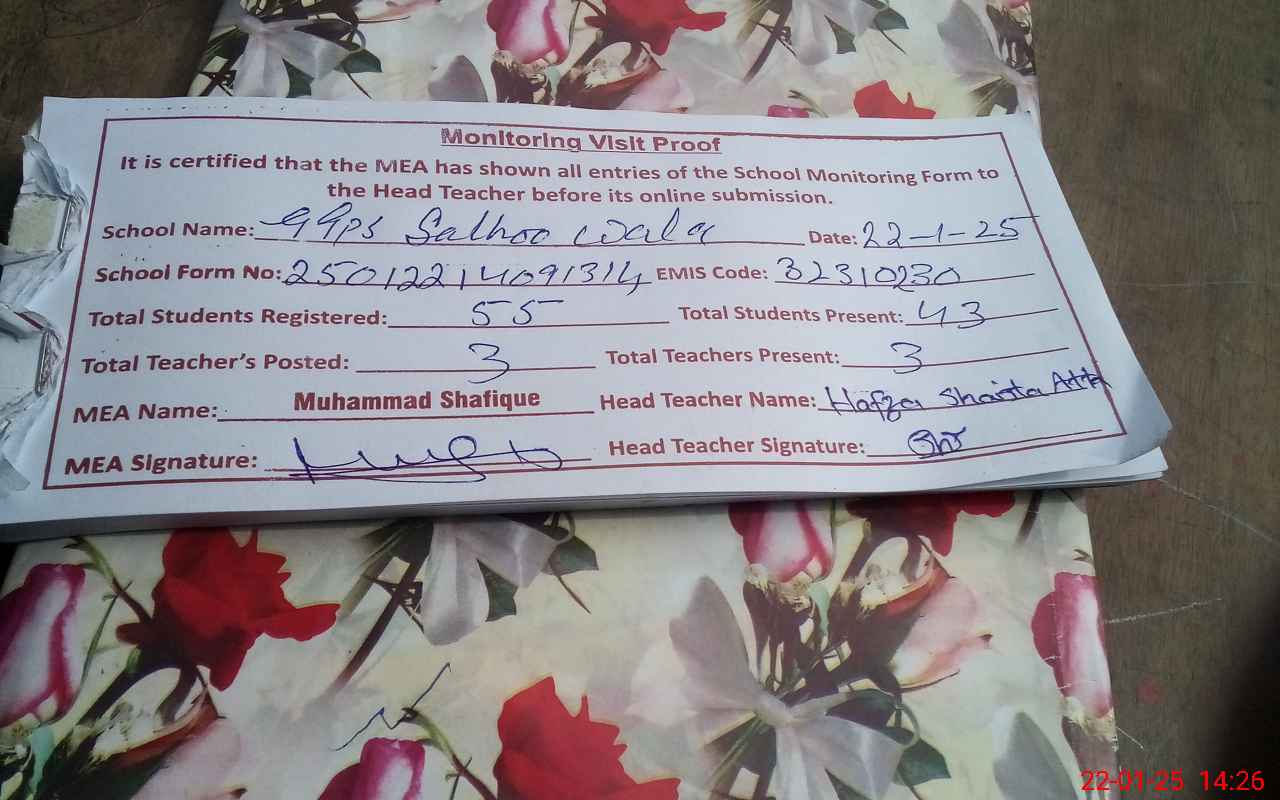 Monitoring Visit Proof
It is certified that the MEA has shown all entries of the School Monitoring Form to
the Head Teacher before its online submission.
School Name: GGPS Salhoo Wala Date: 22-1-25
School Form No: 25012214091314 EMIS Code: 32310230
Total Students Registered: 55 Total Students Present: 43
Total Teacher's Posted: 3 Total Teachers Present: 3
MEA Name: Muhammad Shafique Head Teacher Name: Hafza Shaista
MEA Signature: Head Teacher Signature:
22-01-25 14:26